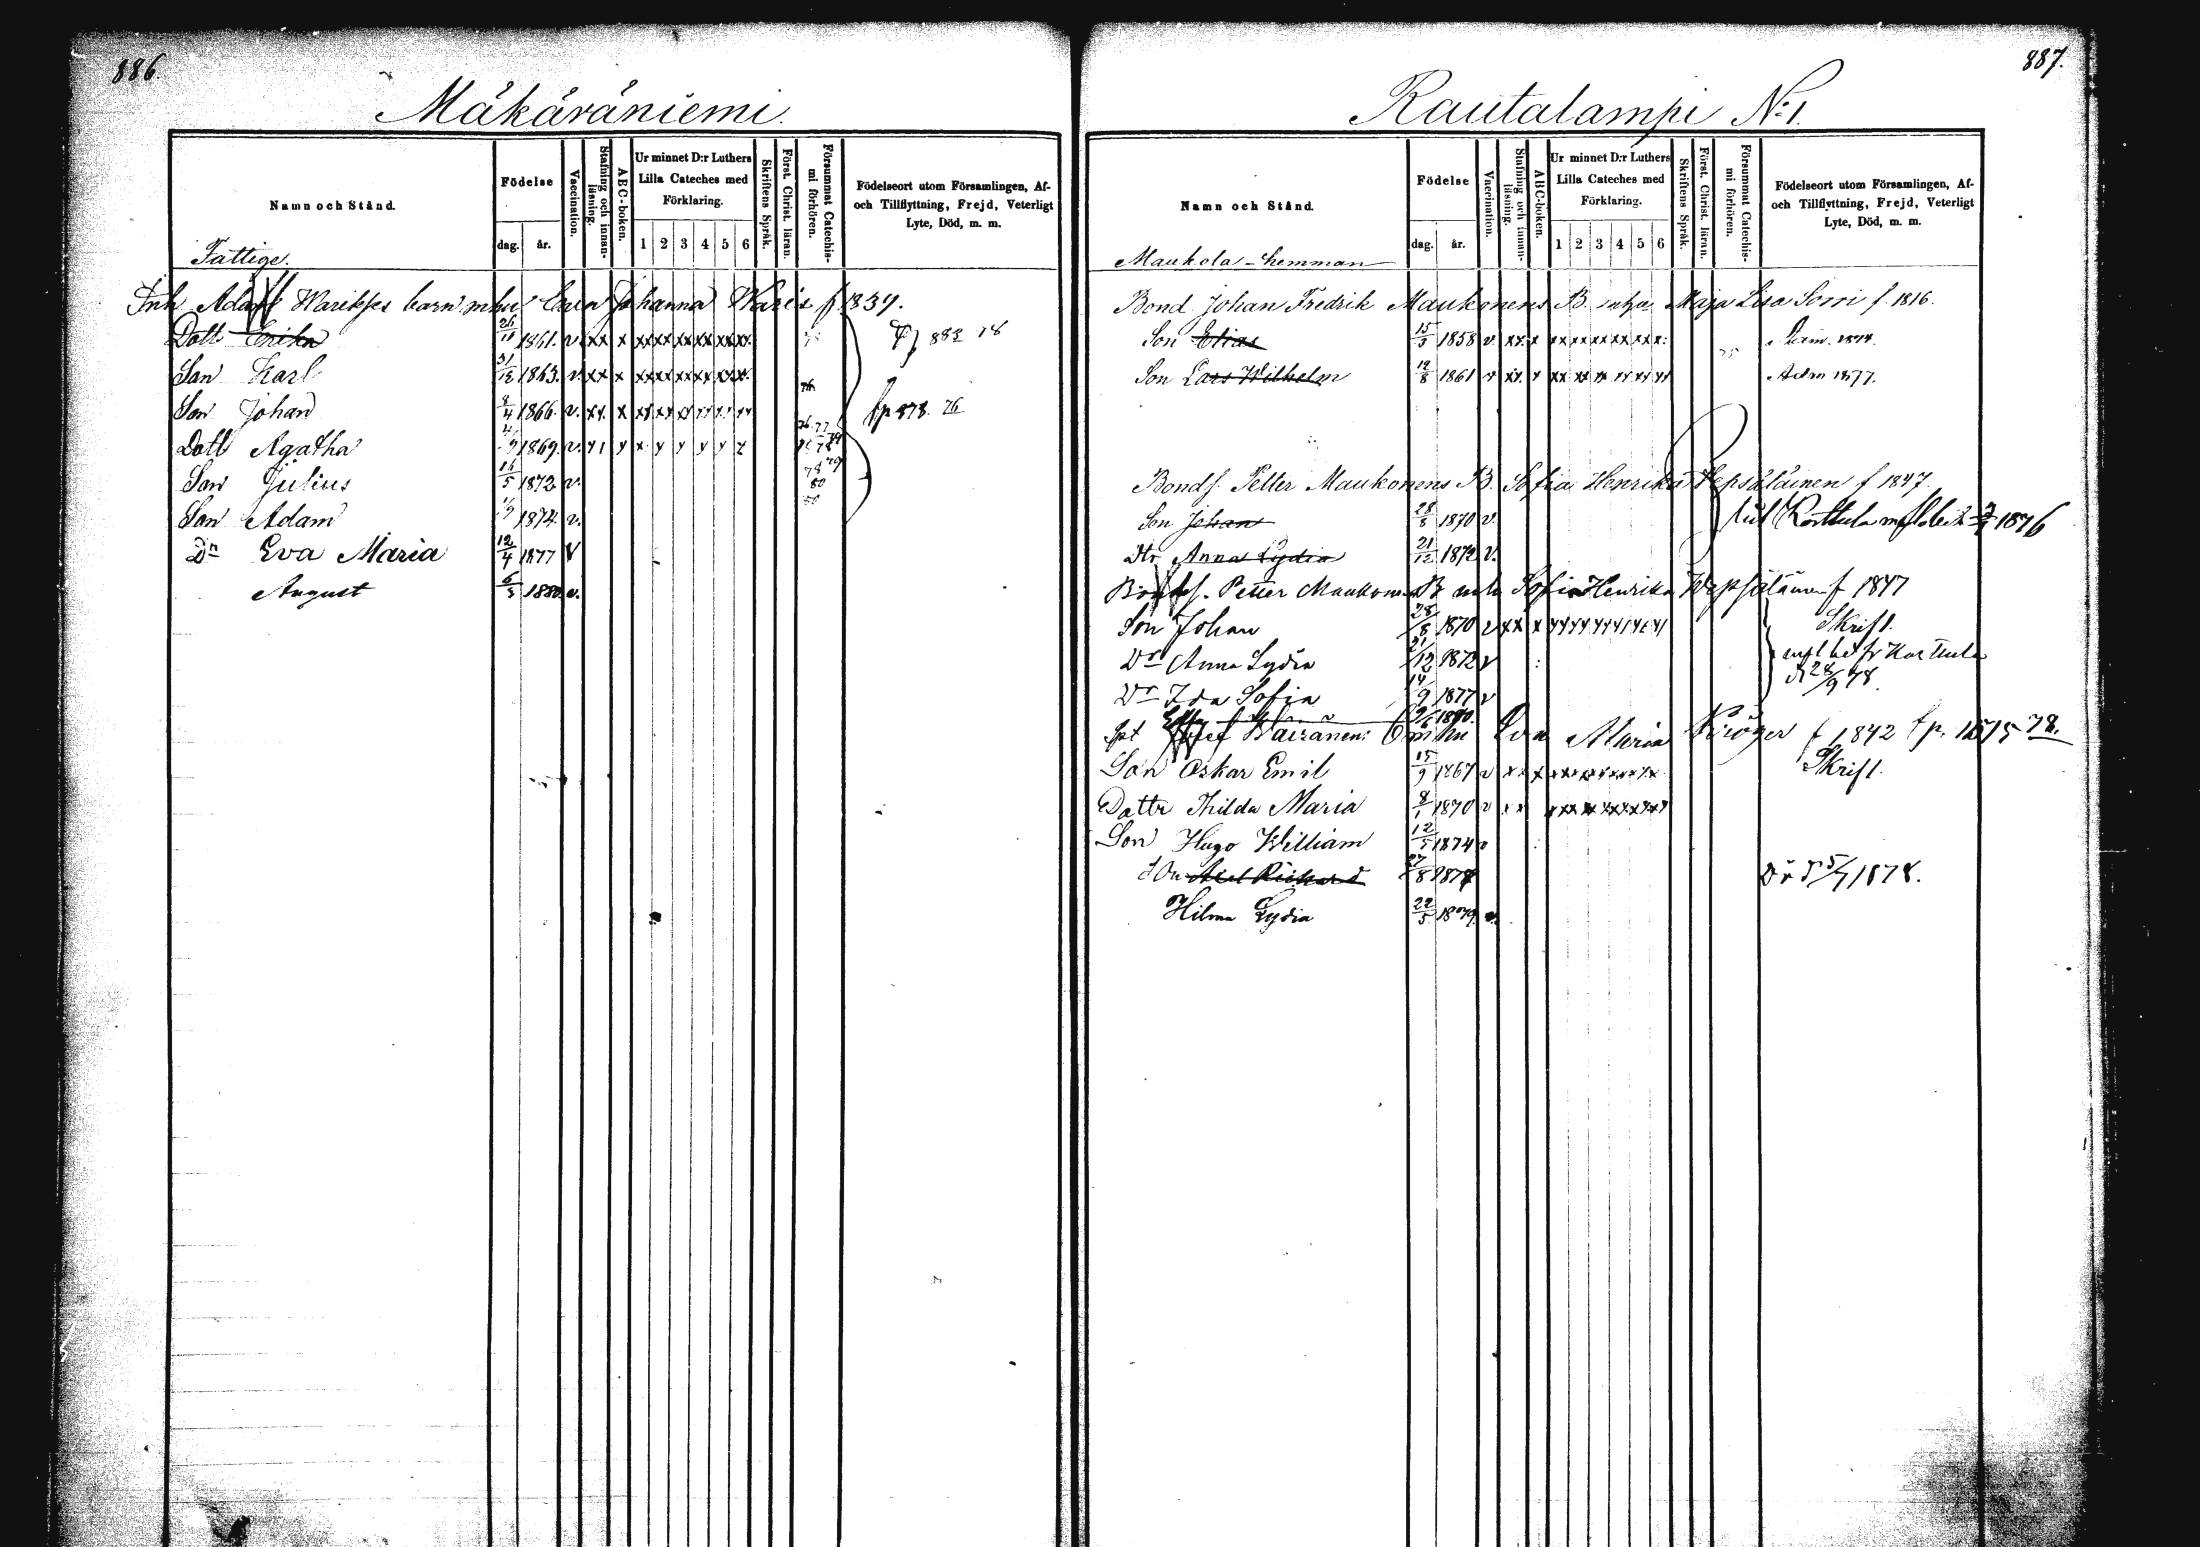 886.
Mäkäräniemi.
Namn och Stånd.
Födelse
dag. år.
Vaccination.
Stafning och innanläsning.
ABC-boken.
Ur minnet D:r Luthers
Lilla Cateches med
Förklaring.
1 2 3 4 5 6
Skriftens Språk.
Först. Christ. läran.
Försummat Catechismi förhören.
Födelseort utom Församlingen, Af-
och Tillflyttning, Frejd, Veterligt
Lyte, Död, m. m.
Fattige.
Inh Adam Warikses barn mhu Eva Johanna Waris f 1839.
Dott Erika 1861. v. xx x xx xx xx xx xx xx 883 78
Son Karl 31/12 1863. v. xx x xx xx xx xx xx xx 76
Son Johan 8/4 1866. v. xx x xx xx xx xx xx xx fp 878. 76
Dott Agatha 1869. v.
Son Julius 16/5 1872 v. 78 79 80
Son Adam 1874. v.
Dr Eva Maria 12/4 1877 V
August 6/5 1880 v.
887.
Rautalampi No 1.
Namn och Stånd.
Födelse
dag. år.
Vaccination.
Stafning och innanläsning.
ABC-boken.
Ur minnet D:r Luthers
Lilla Cateches med
Förklaring.
1 2 3 4 5 6
Skriftens Språk.
Först. Christ. läran.
Försummat Catechismi förhören.
Födelseort utom Församlingen, Af-
och Tillflyttning, Frejd, Veterligt
Lyte, Död, m. m.
Maukola-hemman
Bond Johan Fredrik Maukonens B. Maja Lisa Sorri f. 1816.
Son Elias 15/5 1858 v. xx x xx xx xx xx xx xx
Son Lars Wilhelm 12/8 1861 v xx x xx xx xx xx xx xx Adm 1877.
Bondf. Petter Maukonens B. Sofia Henrika Wepsäläinen f 1847.
Son Johan 28/8 1870 v. Karttula 1876
Dtr Anna Lydia 21/12 1872 v.
Bondf. Petter Maukonens B mh Sofia Henrika Wepsäläinen f 1847
Son Johan 28/8 1870 v xx x Skrift.
Dr Anna Lydia 21/12 1872 v Karttula
Dr Ida Sofia 14/9 1877 v 28/9 78.
1880.
Josef Wäiränen Eva Maria Kröger f 1842 fp. 1515 78.
Son Oskar Emil 15/9 1867 v xx x xx xx xx xx xx Skrift.
Dottr Thilda Maria 1870 v xx
Son Hugo William 12/5 1874 v
Son Axel Rickard 27/8 1877 Dö 5/7 1878.
Hilma Lydia 22/5 1879. v.